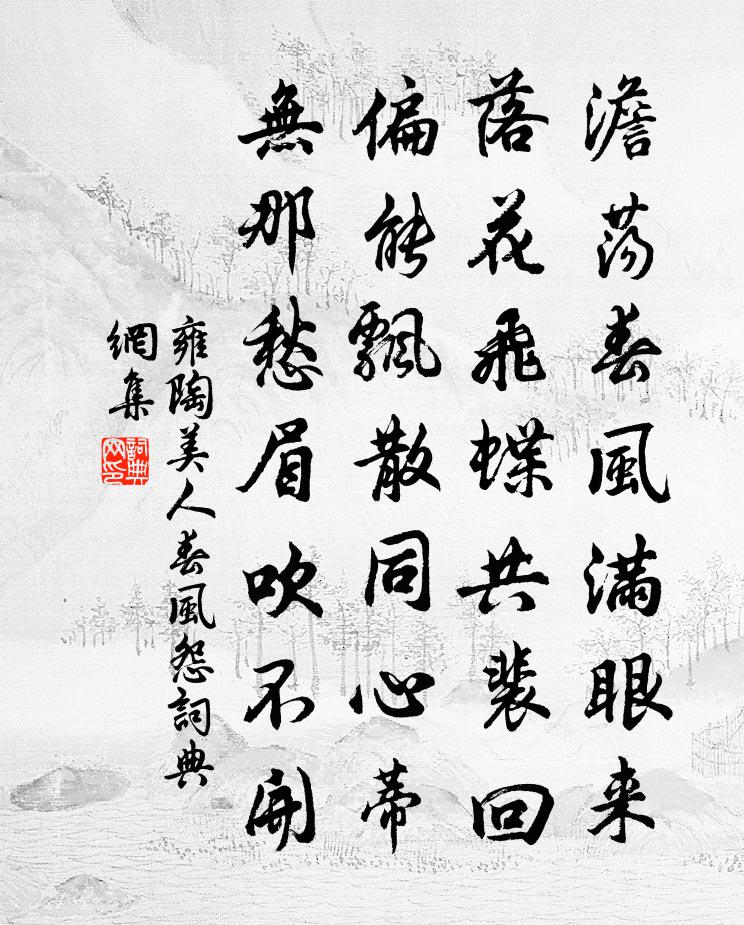 澹荡春風滿眼来
落花飛蝶共裴回
偏能飄散同心蒂
無那愁眉吹不開
雍陶美人春風怨詞典
網集
詞典網印